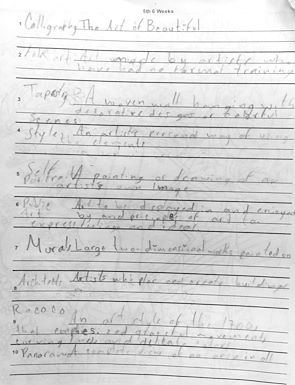 5th 6 Weeks
1 Calligraphy The Art of Beautiful
2 Folk art Art made by artists who
have had no formal training
3 Tapestry A woven wall hanging with
decorative designs or colorful
scenes
4 Style An artist's personal way of using
the elements
5 Self
portrait A painting or drawing of an
artist's own image
6 Public Art to be displayed in and enjoyed
Art by and of art
expressing and ideas
7 Murals Large two-dimensional works painted on
8 Architects Artists who plan and create buildings
9 Rococo An art style of the 1700s
that graceful movements
curving lines and delicate
10 Panorama A complete view of an area in all